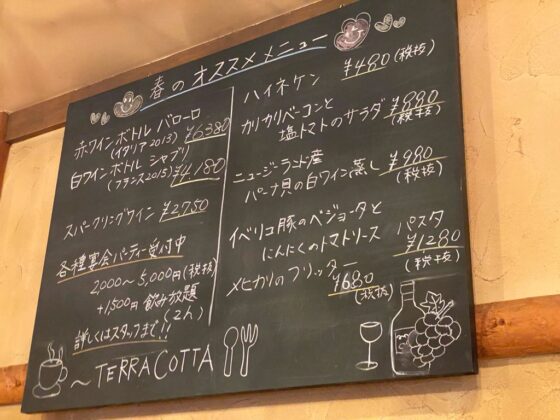 春のオススメメニュー
赤ワイン ボトル バローロ
(イタリア2013) ¥6380
白ワイン ボトル シャブリ
(フランス2015) ¥4,180
スパークリングワイン ¥2750
各種宴会パーティー受付中
2,000～5,000円(税抜)
+1,500円 飲み放題
(2h)
詳しくはスタッフまで!!
～TERRA COTTA
ハイネケン ¥480(税抜)
カリカリベーコンと
塩トマトのサラダ ¥880
(税抜)
ニュージーランド産
パーナ貝の白ワイン蒸し ¥980
(税抜)
イベリコ豚のベジョータと
にんにくのトマトソース パスタ
¥1280
(税抜)
メヒカリのフリッター ¥680
(税抜)